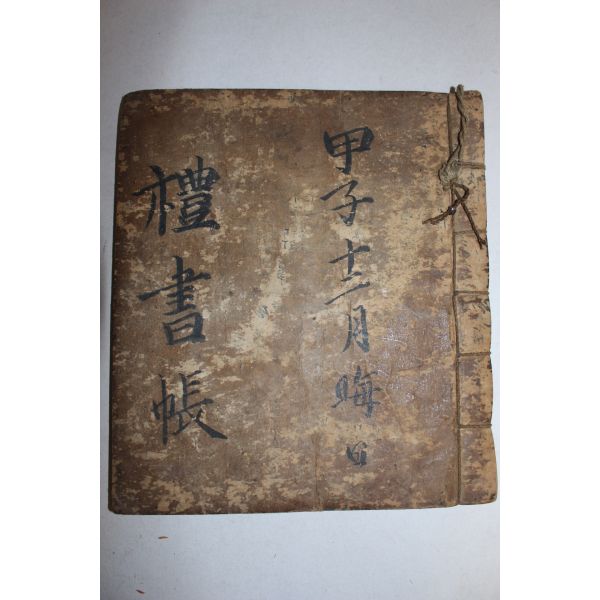 甲子十二月晦日
禮書帳